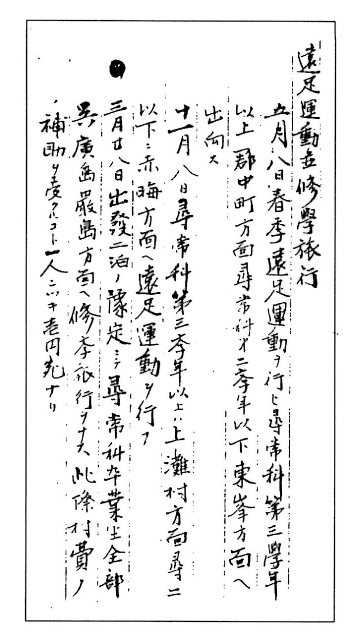 遠足運動並修學旅行
五月八日春季遠足運動ヲ行ヒ尋常科第三學年
以上郡中町方面尋常科才二季年以下東峯方面ヘ
出向ス
十一月八日尋常科第三季年以上ハ上灘村方面尋二
以下ハ赤海方面ヘ遠足運動ヲ行フ
三月廿八日出發二泊ノ豫定ニテ尋常科卒業生全部
呉廣島嚴島方面ヘ修季旅行ヲナス此際村費ノ
補助ヲ受クルコト一人ニ付壱円宛ナリ